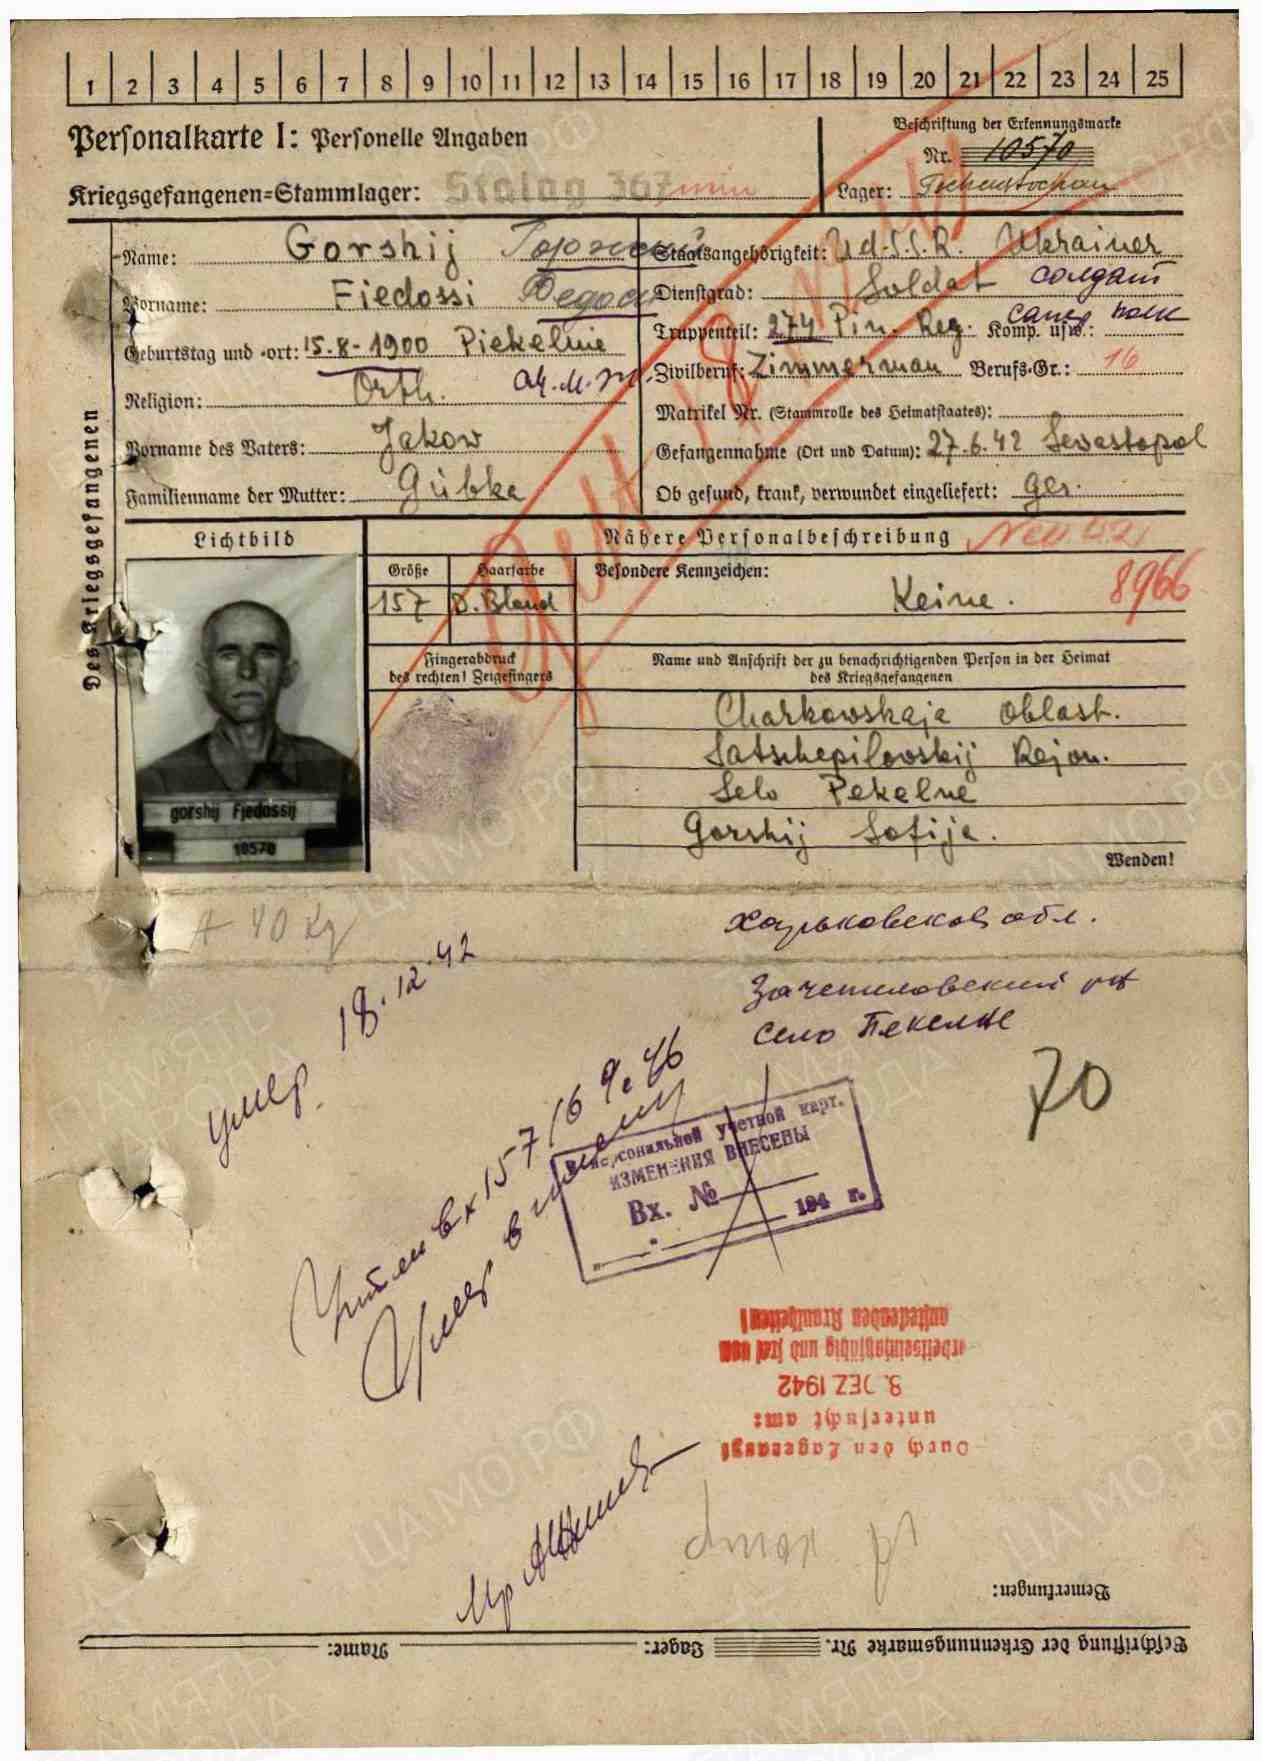 1 2 3 4 5 6 7 8 9 10 11 12 13 14 15 16 17 18 19 20 21 22 23 24 25
Personalkarte I: Personelle Angaben
Beschriftung der Erkennungsmarke
Nr. 10570
Kriegsgefangenen=Stammlager: Stalag 367
Lager: Tschenstochau
Des Kriegsgefangenen
Name: Gorshij Горжий
Staatsangehörigkeit: U.d.S.S.R. Ukrainer
Vorname: Fiedossi Федосий
Dienstgrad: Soldat солдат
Geburtstag und -ort: 15.8-1900 Piekelnie
Truppenteil: 274 Pin. Reg. Komp. usw.: сапер полк
Religion: Orth.
Zivilberuf: Zimmerman Berufs-Gr.: 16
Matrikel Nr. (Stammrolle des Heimatstaates):
Vorname des Vaters: Jakow
Gefangennahme (Ort und Datum): 27.6.42 Sewastopol
Familienname der Mutter: Gubka
Ob gesund, krank, verwundet eingeliefert: ges.
Lichtbild
Nähere Personalbeschreibung
Größe Haarfarbe Besondere Kennzeichen:
157 D. Bland Keine. 8966
Fingerabdruck
des rechten! Zeigefingers
Name und Anschrift der zu benachrichtigenden Person in der Heimat
des Kriegsgefangenen
Charkowskaja Oblast.
Satschepilowskij Rejon.
Selo Pekelne
Gorshij Sofija.
gorshij Fjedossij
10570
Wenden!
40 kg
Харьковская обл.
Зачепиловский рн
село Пекелне
умер 18.12.42
70
157169с46
Умер в плену
В персональной учетной карт.
ИЗМЕНЕНИЯ ВНЕСЕНЫ
Вх. №
194 г.
Durch den Lagerarzt
untersucht am:
8. DEZ 1942
arbeitseinsatzfähig und frei von
ansteckenden Krankheiten!
Bemerkungen:
Beschriftung der Erkennungsmarke Nr. Lager: Name: